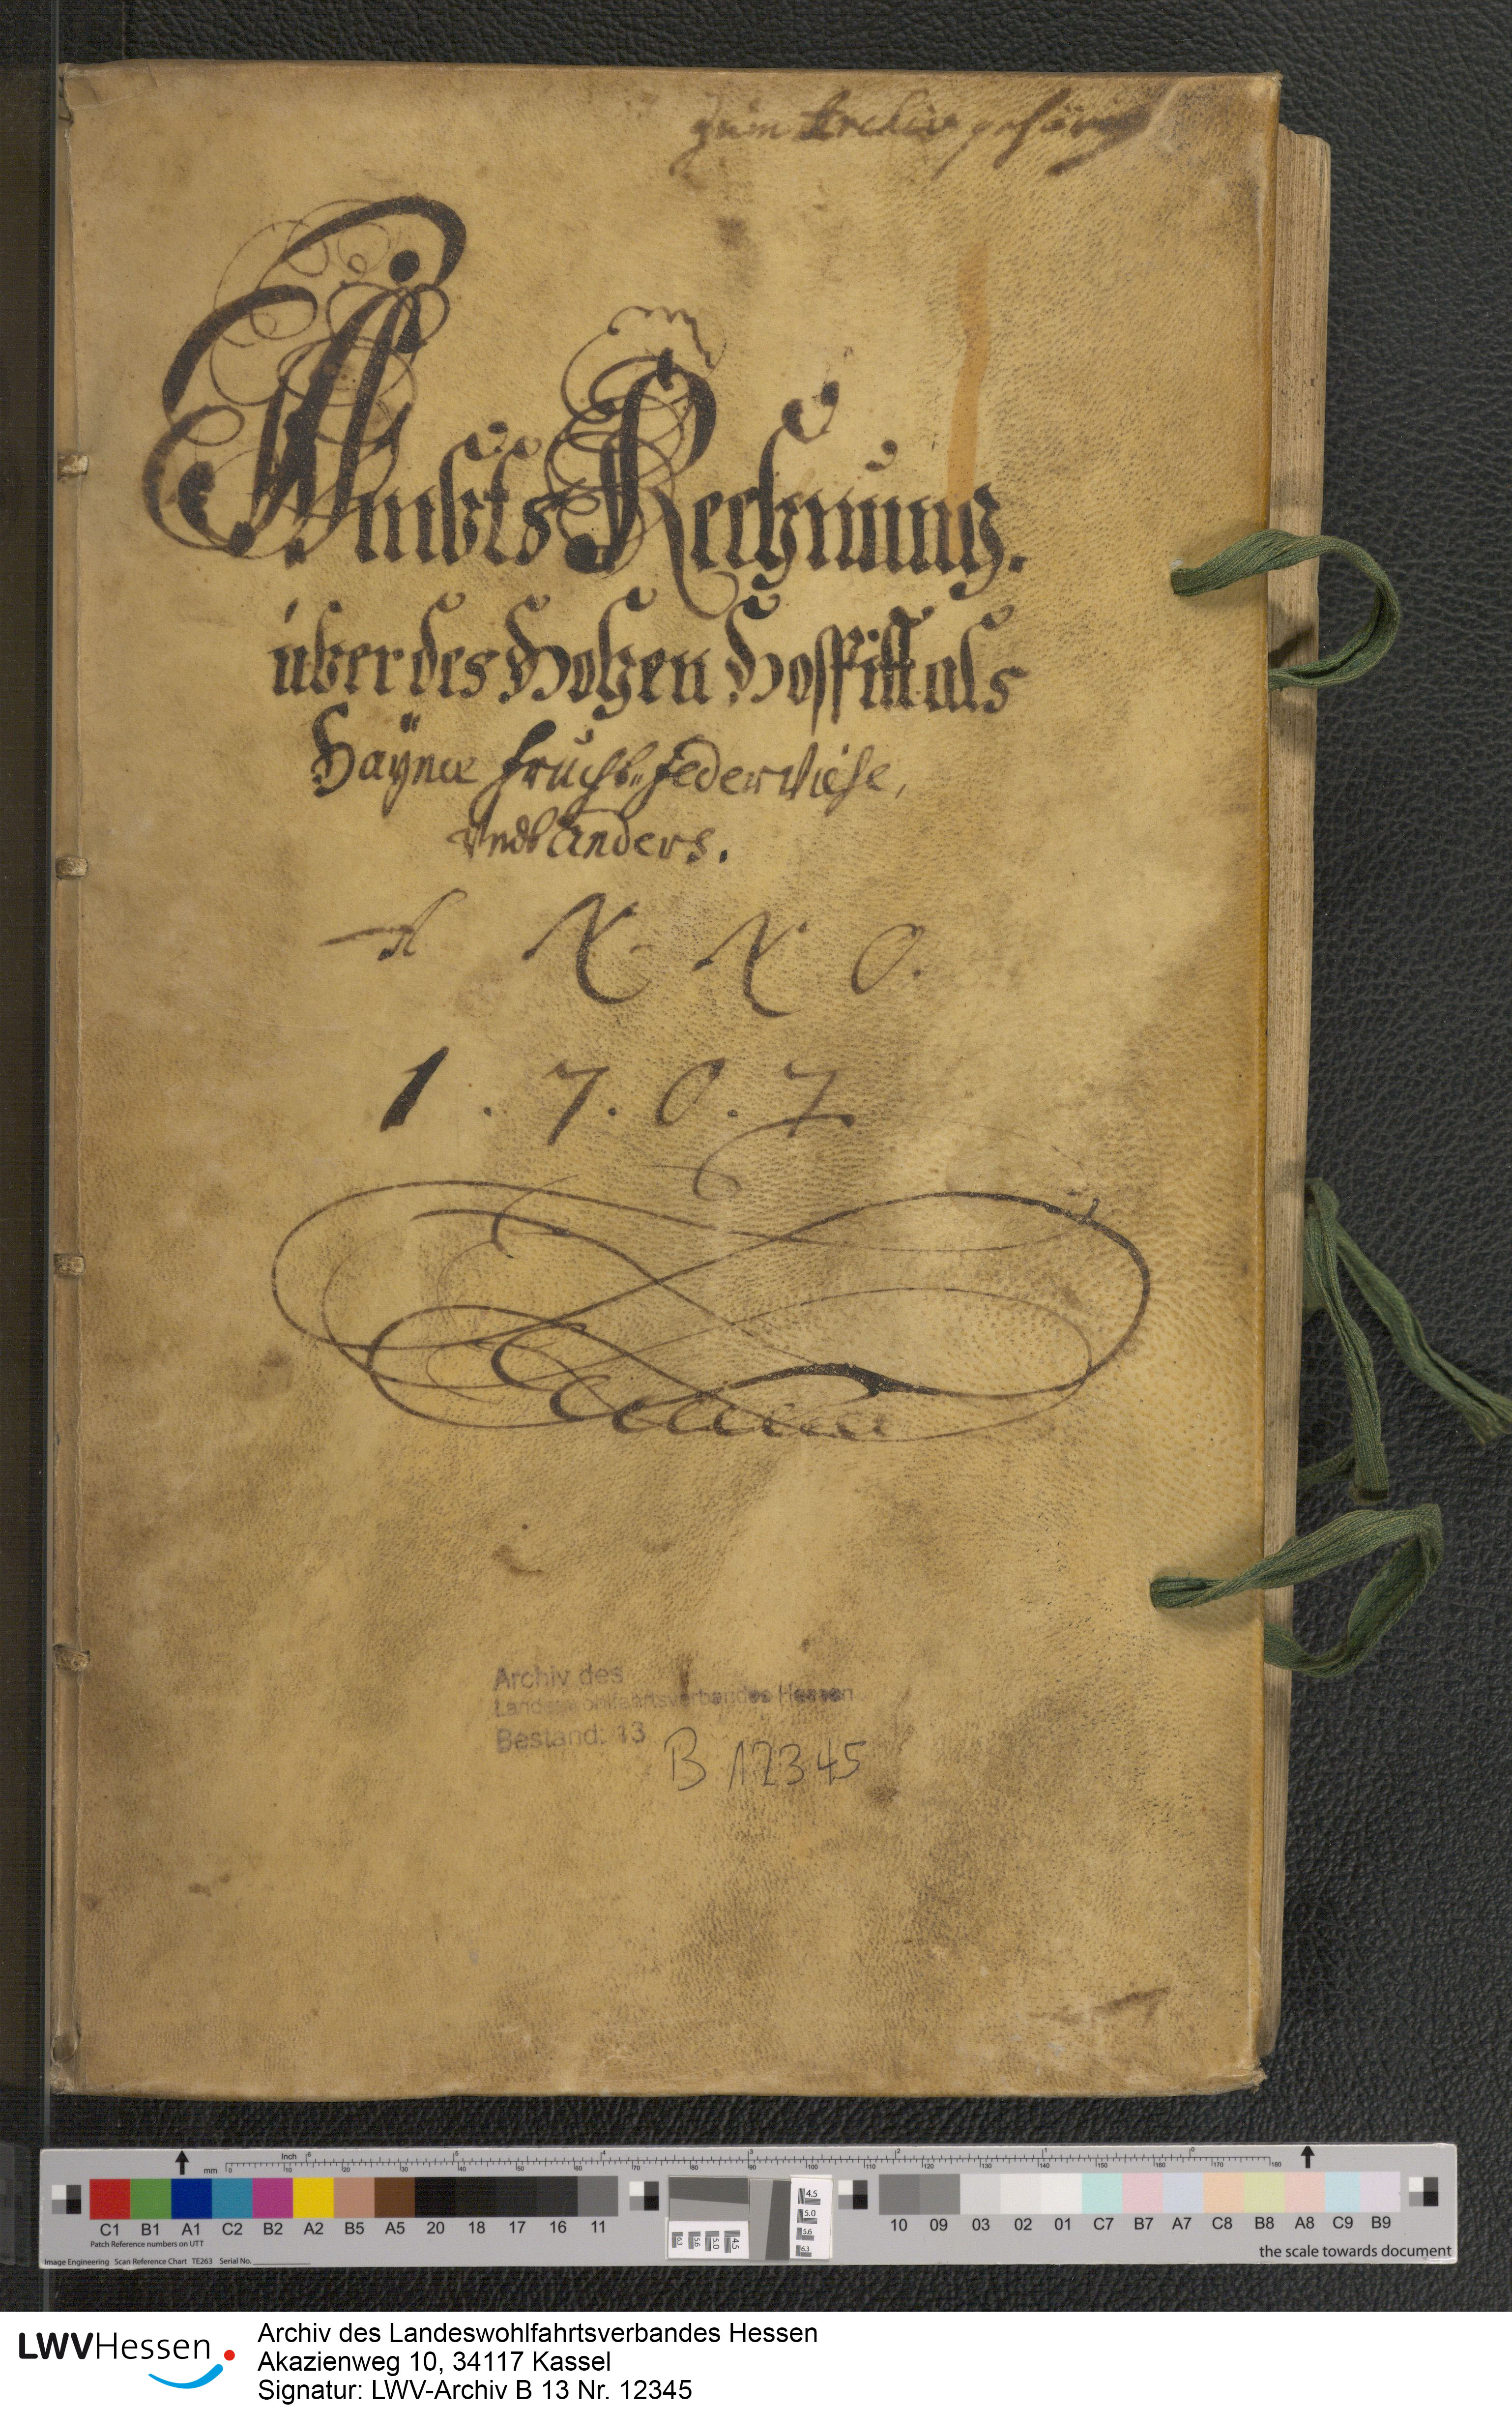 zum Archiv gehörig
Ambts Rechnung.
über des Hohen Hospittals
Haÿna Frucht, Federviehe,
Undt Anders.
A N N O.
1.7.0.7
Archiv des
Landeswohlfahrtsverbandes Hessen
Bestand: 13
B 12345
mm Inch
C1 B1 A1 C2 B2 A2 B5 A5 20 18 17 16 11
10 09 03 02 01 C7 B7 A7 C8 B8 A8 C9 B9
Patch Reference numbers on UTT
Image Engineering Scan Reference Chart TE263 Serial No.
the scale towards document
LWVHessen
Archiv des Landeswohlfahrtsverbandes Hessen
Akazienweg 10, 34117 Kassel
Signatur: LWV-Archiv B 13 Nr. 12345